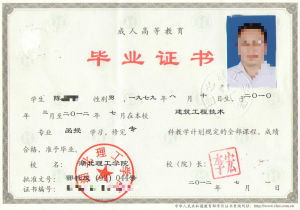 成人高等教育
毕业证书
学生 陈 性别 男，一九七九年 八 月 十 日生，于二〇一〇
年 三 月至二〇一二年 七 月在本校 建筑工程技术
专业 函授 学习，修完 专 科教学计划规定的全部课程，成绩
合格，准予毕业。
校 名：湖北理工学院 校（院）长：
李宏
批准文号：
证书编号： 二〇一二年 七 月 日
中华人民共和国教育部学历证书查询网址：http://www.chsi.com.cn